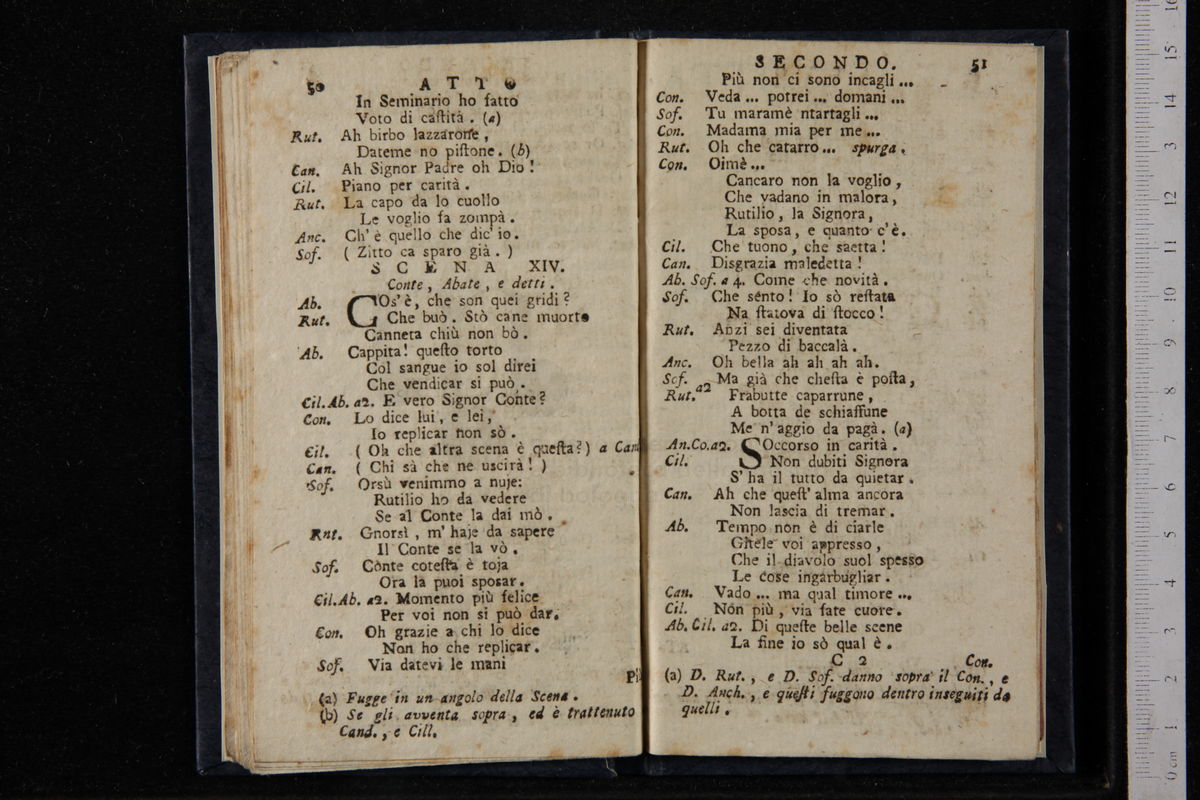 50 ATTO
In Seminario ho fatto
Voto di caſtità . (a)
Rut. Ah birbo lazzarone ,
Dateme no piſtone . (b)
Can. Ah Signor Padre oh Dio !
Cil. Piano per carità .
Rut. La capo da lo cuollo
Le voglio fa zompà .
Anc. Ch' è quello che dic' io .
Sof. ( Zitto ca sparo già . )
SCENA XIV.
Conte , Abate , e detti .
Ab. COs' è, che son quei gridi ?
Rut. Che buò . Stò cane muorto
Canneta chiù non bò .
Ab. Cappita! queſto torto
Col sangue io sol direi
Che vendicar si può .
Cil.Ab. a2. E vero Signor Conte ?
Con. Lo dice lui , e lei ,
Io replicar non sò .
Cil. ( Oh che altra scena è queſta ? ) a Can
Can. ( Chi sà che ne uscirà ! )
Sof. Orsù venimmo a nuje:
Rutilio ho da vedere
Se al Conte la dai mò .
Rut. Gnorsì , m' haje da sapere
Il Conte se la vò .
Sof. Conte coteſta è toja
Ora la puoi sposar .
Cil.Ab. a2. Momento più felice
Per voi non si può dar.
Con. Oh grazie a chi lo dice
Non ho che replicar .
Sof. Via datevi le mani
Più
(a) Fugge in un angolo della Scena .
(b) Se gli avventa sopra , ed è trattenuto
Cand. , e Cill.
SECONDO. 51
Più non ci sono incagli ...
Con. Veda ... potrei ... domani ...
Sof. Tu maramè ntartagli ...
Con. Madama mia per me ...
Rut. Oh che catarro ... spurga .
Con. Oimè ...
Cancaro non la voglio ,
Che vadano in malora ,
Rutilio , la Signora ,
La sposa , e quanto c' è .
Cil. Che tuono , che saetta !
Can. Disgrazia maledetta !
Ab. Sof. a 4. Come che novità .
Sof. Che sento ! Io sò reſtata
Na ſtatova di ſtocco !
Rut. Anzi sei diventata
Pezzo di baccalà .
Anc. Oh bella ah ah ah ah.
Sof. Ma già che cheſta è poſta ,
Rut. a2 Frabutte caparrune ,
A botta de schiaffune
Me n' aggio da pagà . (a)
An.Co.a2. SOccorso in carità .
Cil. Non dubiti Signora
S' ha il tutto da quietar .
Can. Ah che queſt' alma ancora
Non lascia di tremar .
Ab. Tempo non è di ciarle
Gitele voi appresso ,
Che il diavolo suol spesso
Le cose ingarbugliar .
Can. Vado ... ma qual timore ...
Cil. Nón più , via fate cuore .
Ab. Cil. a2. Di queſte belle scene
La fine io sò qual è .
C 2 Con.
(a) D. Rut. , e D. Sof. danno sopra il Con. , e
D. Anch. , e queſti fuggono dentro inseguiti da
quelli .